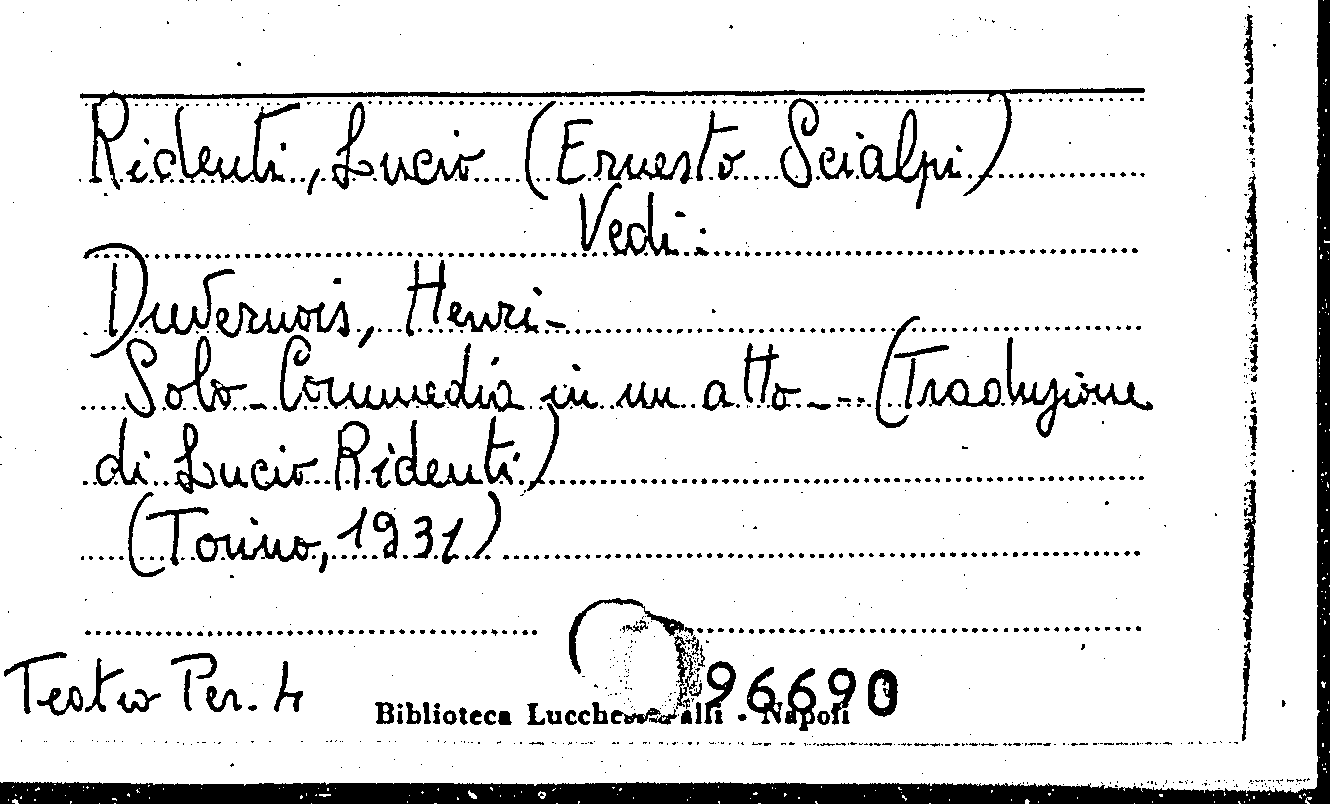 Ridenti, Lucio (Ernesto Scialpi)
Vedi:
Duvernois, Henri-
Solo - Commedia in un atto - - (Traduzione
di Lucio Ridenti)
(Torino, 1931)
Teatro Per. 4
96690
Biblioteca Lucchesi Palli - Napoli